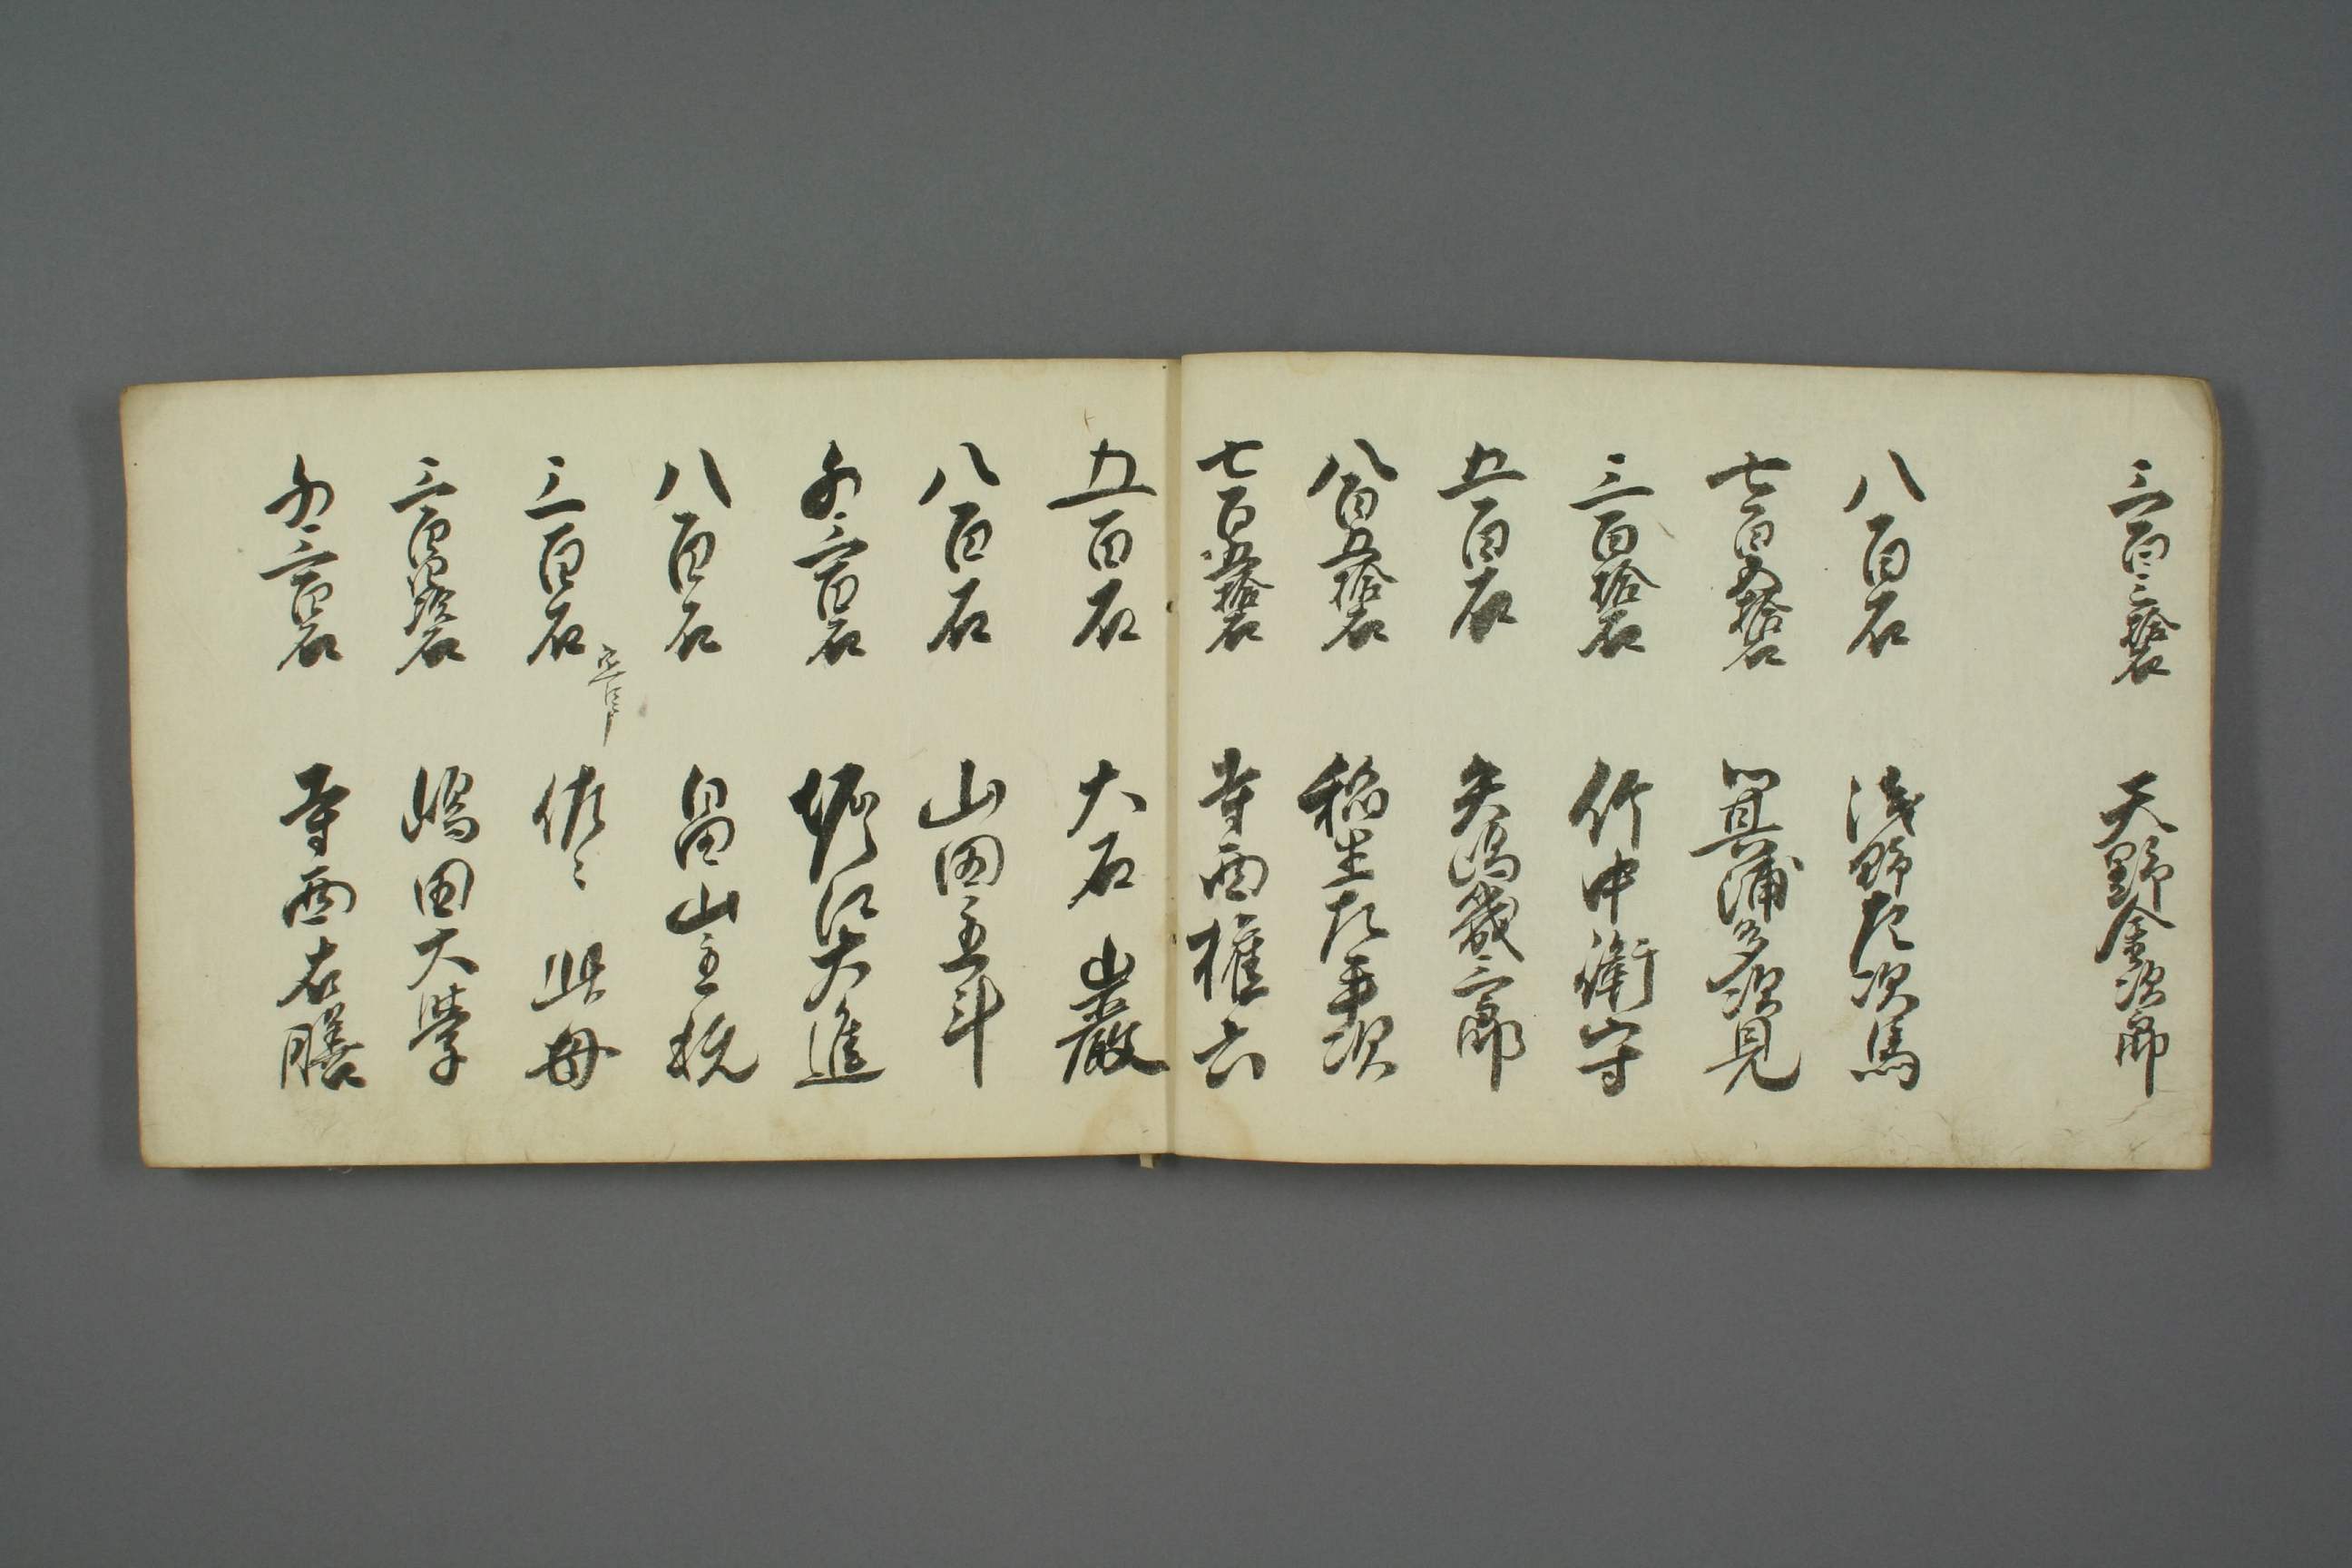 三百三拾石 天野金次郎
八百石 浅野左次馬
七百五拾石 箕浦多次見
三百拾石 竹中衛守
五百石 矢嶋蔵三郎
八百五拾石 稲生左平次
七百五拾石 寺西権六
五百石 大石山巌
八百石 山田主斗
千三百石 堀江大進
八百石 畠山主税
三百石 佐々此母
三百四拾石 嶋田大学
千三百石 寺西右膳